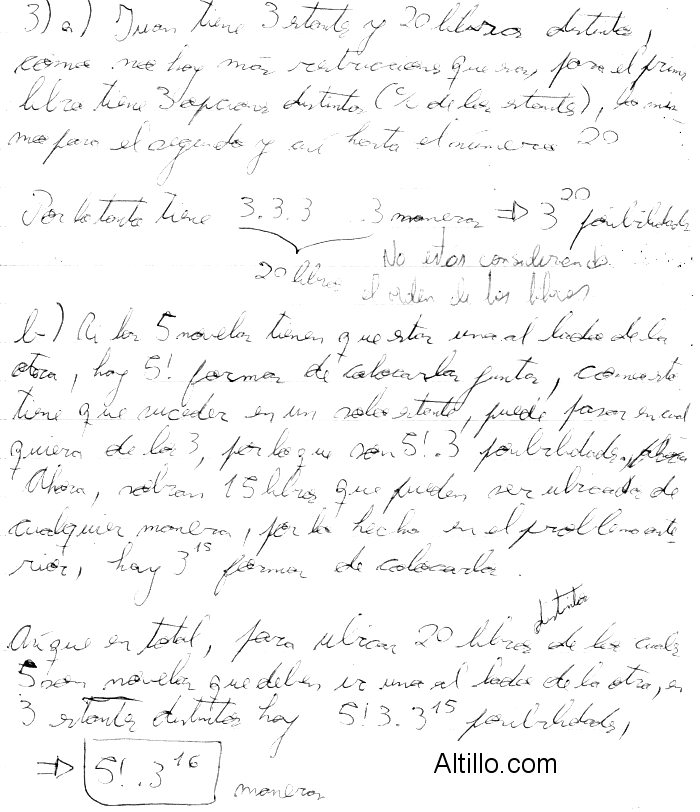 3) a) Juan tiene 3 estantes y 20 libros distintos,
como no hay más restricciones que esas, para el primer
libro tiene 3 opciones distintas (c/u de los estantes), lo mis-
mo para el segundo y así hasta el número 20
Por lo tanto tiene 3.3.3 .3 maneras ⇒ 3^20 posibilidades
20 libros
No estás considerando
el orden de los libros
b) Si las 5 novelas tienen que estar una al lado de la
otra, hay 5! formas de colocarlas juntas, como esto
tiene que suceder en un solo estante, puede pasar en cual
quiera de los 3, por lo que son 5!.3 posibilidades,
Ahora, sobran 15 libros que pueden ser ubicados de
cualquier manera, por lo hecho en el problema ante
rior, hay 3^15 formas de colocarlos.
distintos
Así que en total, para ubicar 20 libros de los cuales
5 son novelas que deben ir una al lado de la otra, en
3 estantes distintos hay 5! 3. 3^15 posibilidades,
⇒ 5! . 3^16 maneras
Altillo.com